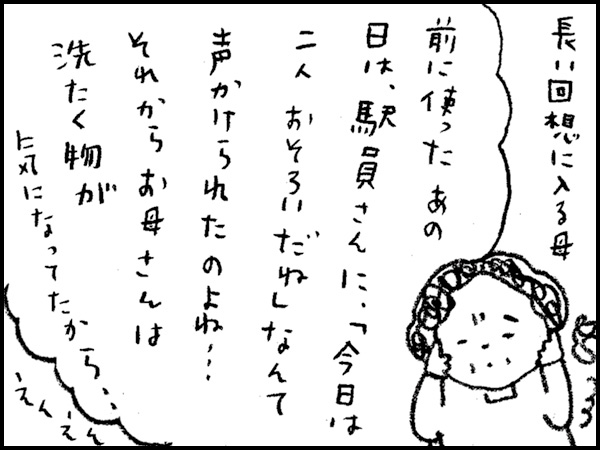 長い回想に入る母
前に使ったあの
日は、駅員さんに、「今日は
二人おそろいだね」なんて
声かけられたのよね…
それからお母さんは
洗たく物が
気になってたから、、
えんえん